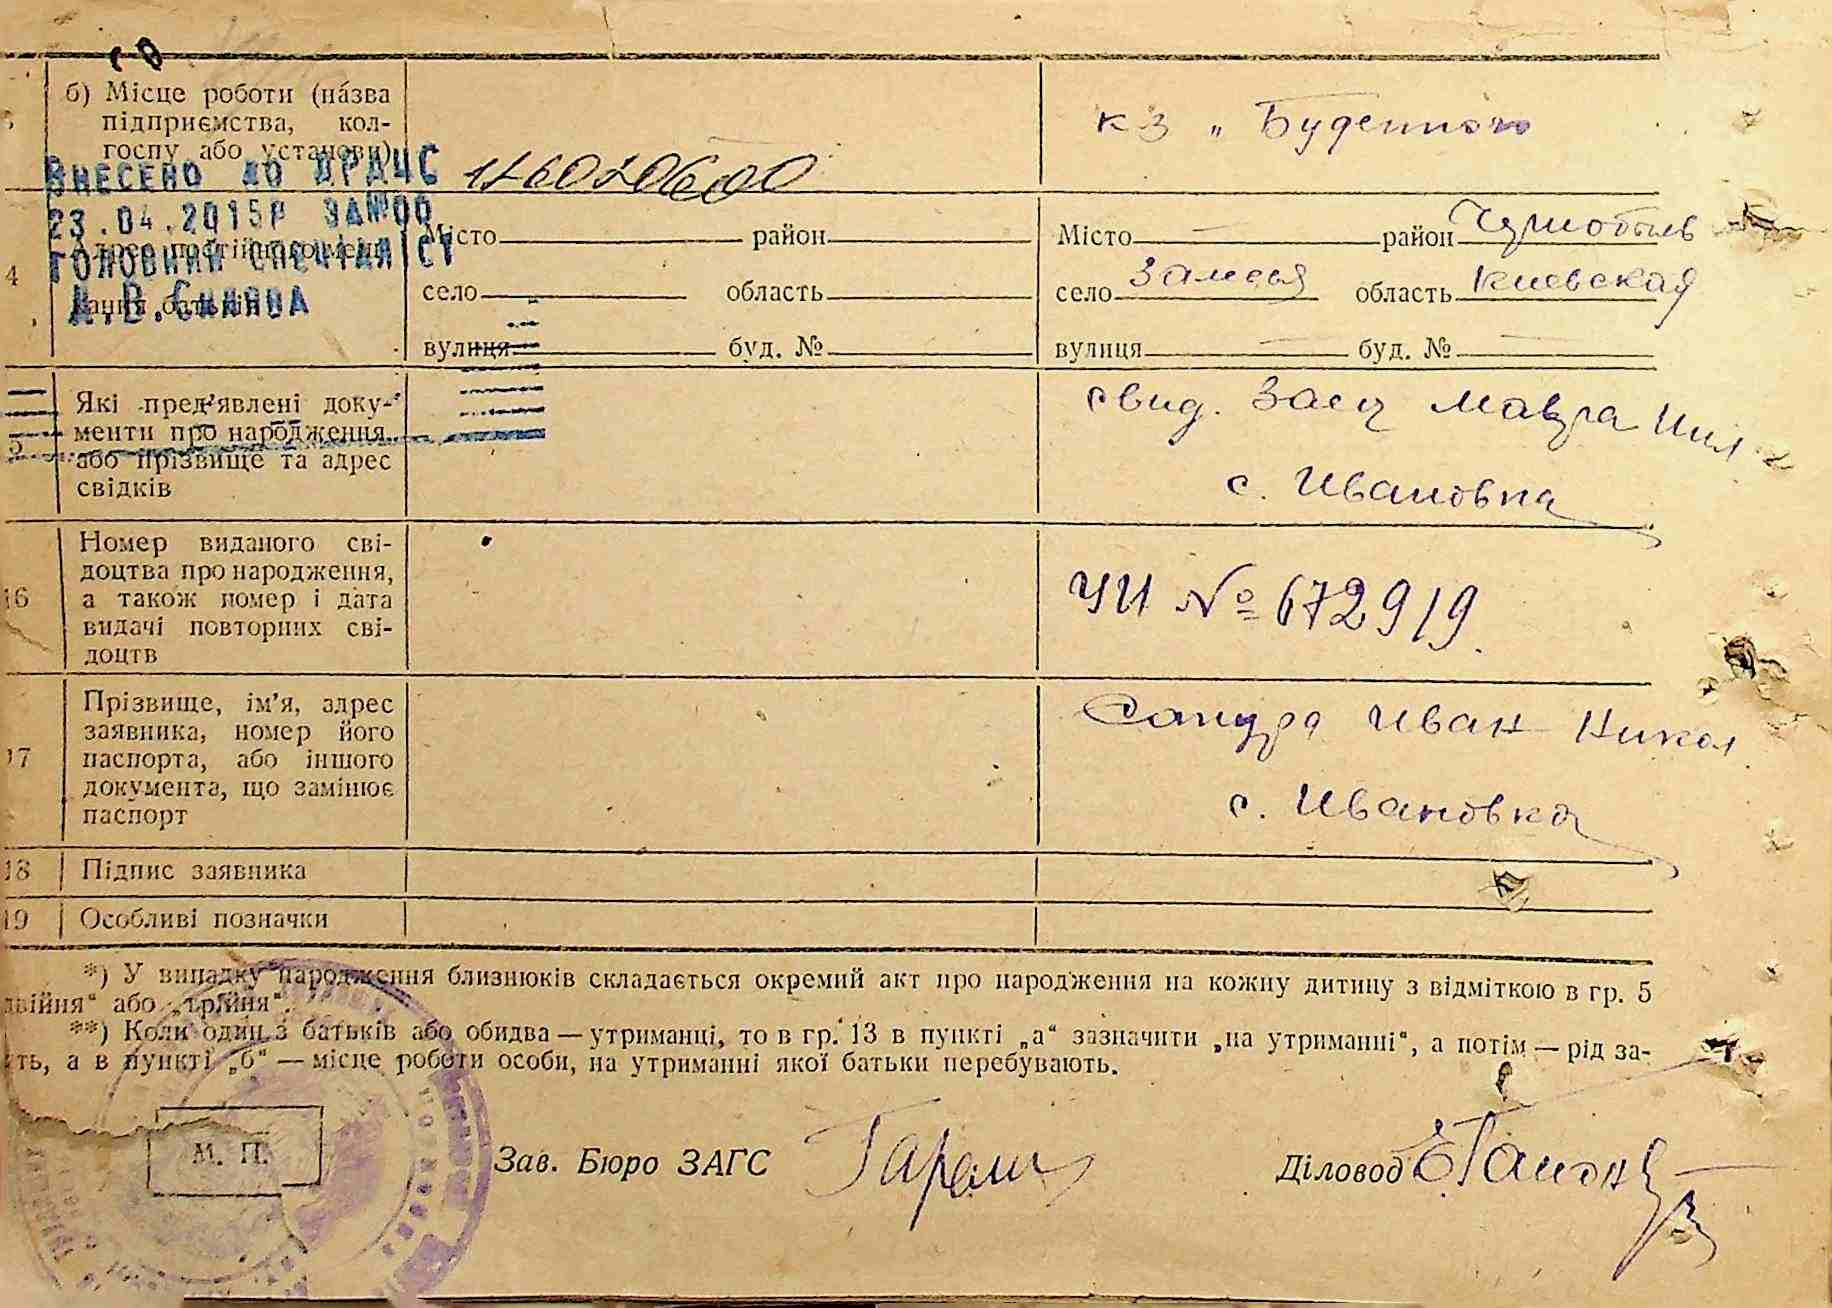 б) Місце роботи (назва
підприємства, кол-
госпу або установи)
кз „Буденного
ВНЕСЕНО ДО ДРАЧС
23.04.2015р ЗАМ№00
ГОЛОВНИЙ СПЕЦІАЛІСТ
Місто район Місто район Чернобыль
4
село область село Замосья область Киевская
вулиця буд. № вулиця буд. №
Які пред'явлені доку-
менти про народження
або прізвище та адрес
свідків
свид. Заец Мавра
с. Ивановка
16
Номер виданого сві-
доцтва про народження,
а також номер і дата
видачі повторних сві-
доцтв
ЧИ № 672919
17
Прізвище, ім'я, адрес
заявника, номер його
паспорта, або іншого
документа, що замінює
паспорт
Иван Никол
с. Ивановка
18 Підпис заявника
19 Особливі позначки
*) У випадку народження близнюків складається окремий акт про народження на кожну дитину з відміткою в гр. 5
двійня" або „трійня".
**) Коли один з батьків або обидва — утриманці, то в гр. 13 в пункті „а" зазначити „на утриманні", а потім — рід за-
ть, а в пункті „б" — місце роботи особи, на утриманні якої батьки перебувають.
М. П.
Зав. Бюро ЗАГС
Діловод